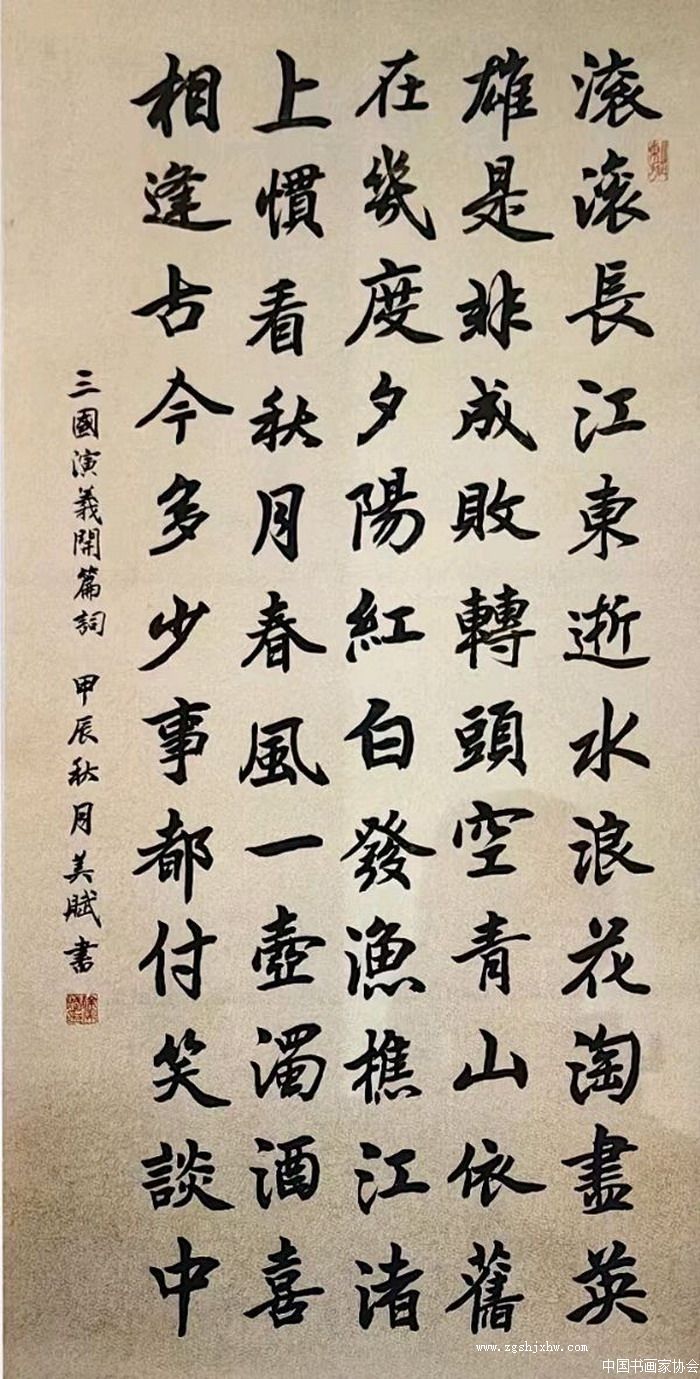 滚滚長江東逝水浪花淘盡英
雄是非成敗轉頭空青山依舊
在幾度夕陽紅白發漁樵江渚
上慣看秋月春風一壺濁酒喜
相逢古今多少事都付笑談中
三國演義開篇詞 甲辰秋月美賦書
www.zgshjxhw.com
中国书画家协会